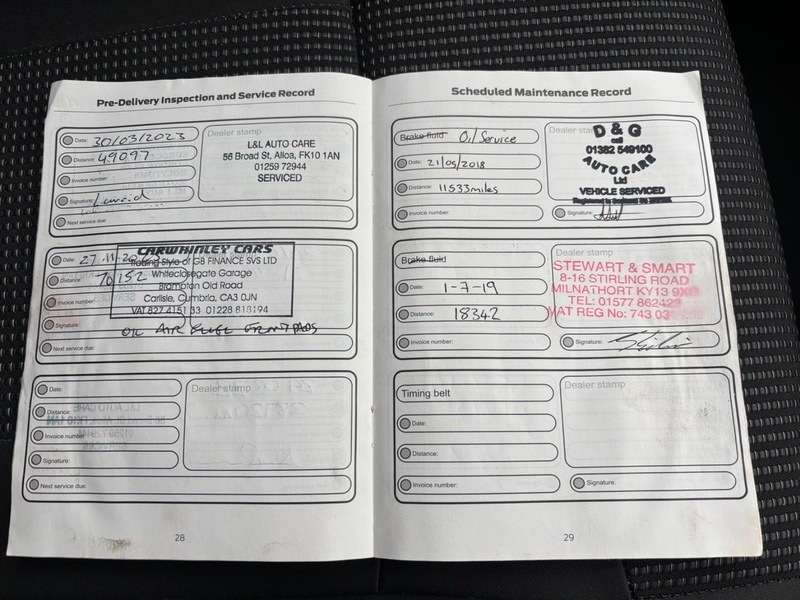 Pre-Delivery Inspection and Service Record
Date: 30/03/2023
Distance: 49097
Invoice number:
Signature:
Next service due:
Dealer stamp
L&L AUTO CARE
56 Broad St, Alloa, FK10 1AN
01259 72944
SERVICED
Date: 27.11.20
Distance: 70152
Invoice number
Signature:
Next service due:
CARWHINLEY CARS
Trading Style of G8 FINANCE SVS LTD
Whiteclosegate Garage
Brampton Old Road
Carlisle, Cumbria, CA3 0JN
VAT 827 4151 33 01228 818194
OIL AIR FUEL FRONT PADS
Date:
Distance:
Invoice number
Signature:
Next service due:
Dealer stamp
28
Scheduled Maintenance Record
Brake fluid Oil Service
Date: 21/05/2018
Distance: 11533miles
Invoice number:
Dealer stamp
D & G
01382 549100
AUTO CARE
Ltd
VEHICLE SERVICED
Signature:
Brake fluid
Date: 1-7-19
Distance: 18342
Invoice number:
Dealer stamp
STEWART & SMART
8-16 STIRLING ROAD
MILNATHORT KY13 9
TEL: 01577 862423
VAT REG No: 743 03
Signature:
Timing belt
Date:
Distance:
Invoice number:
Dealer stamp
Signature:
29